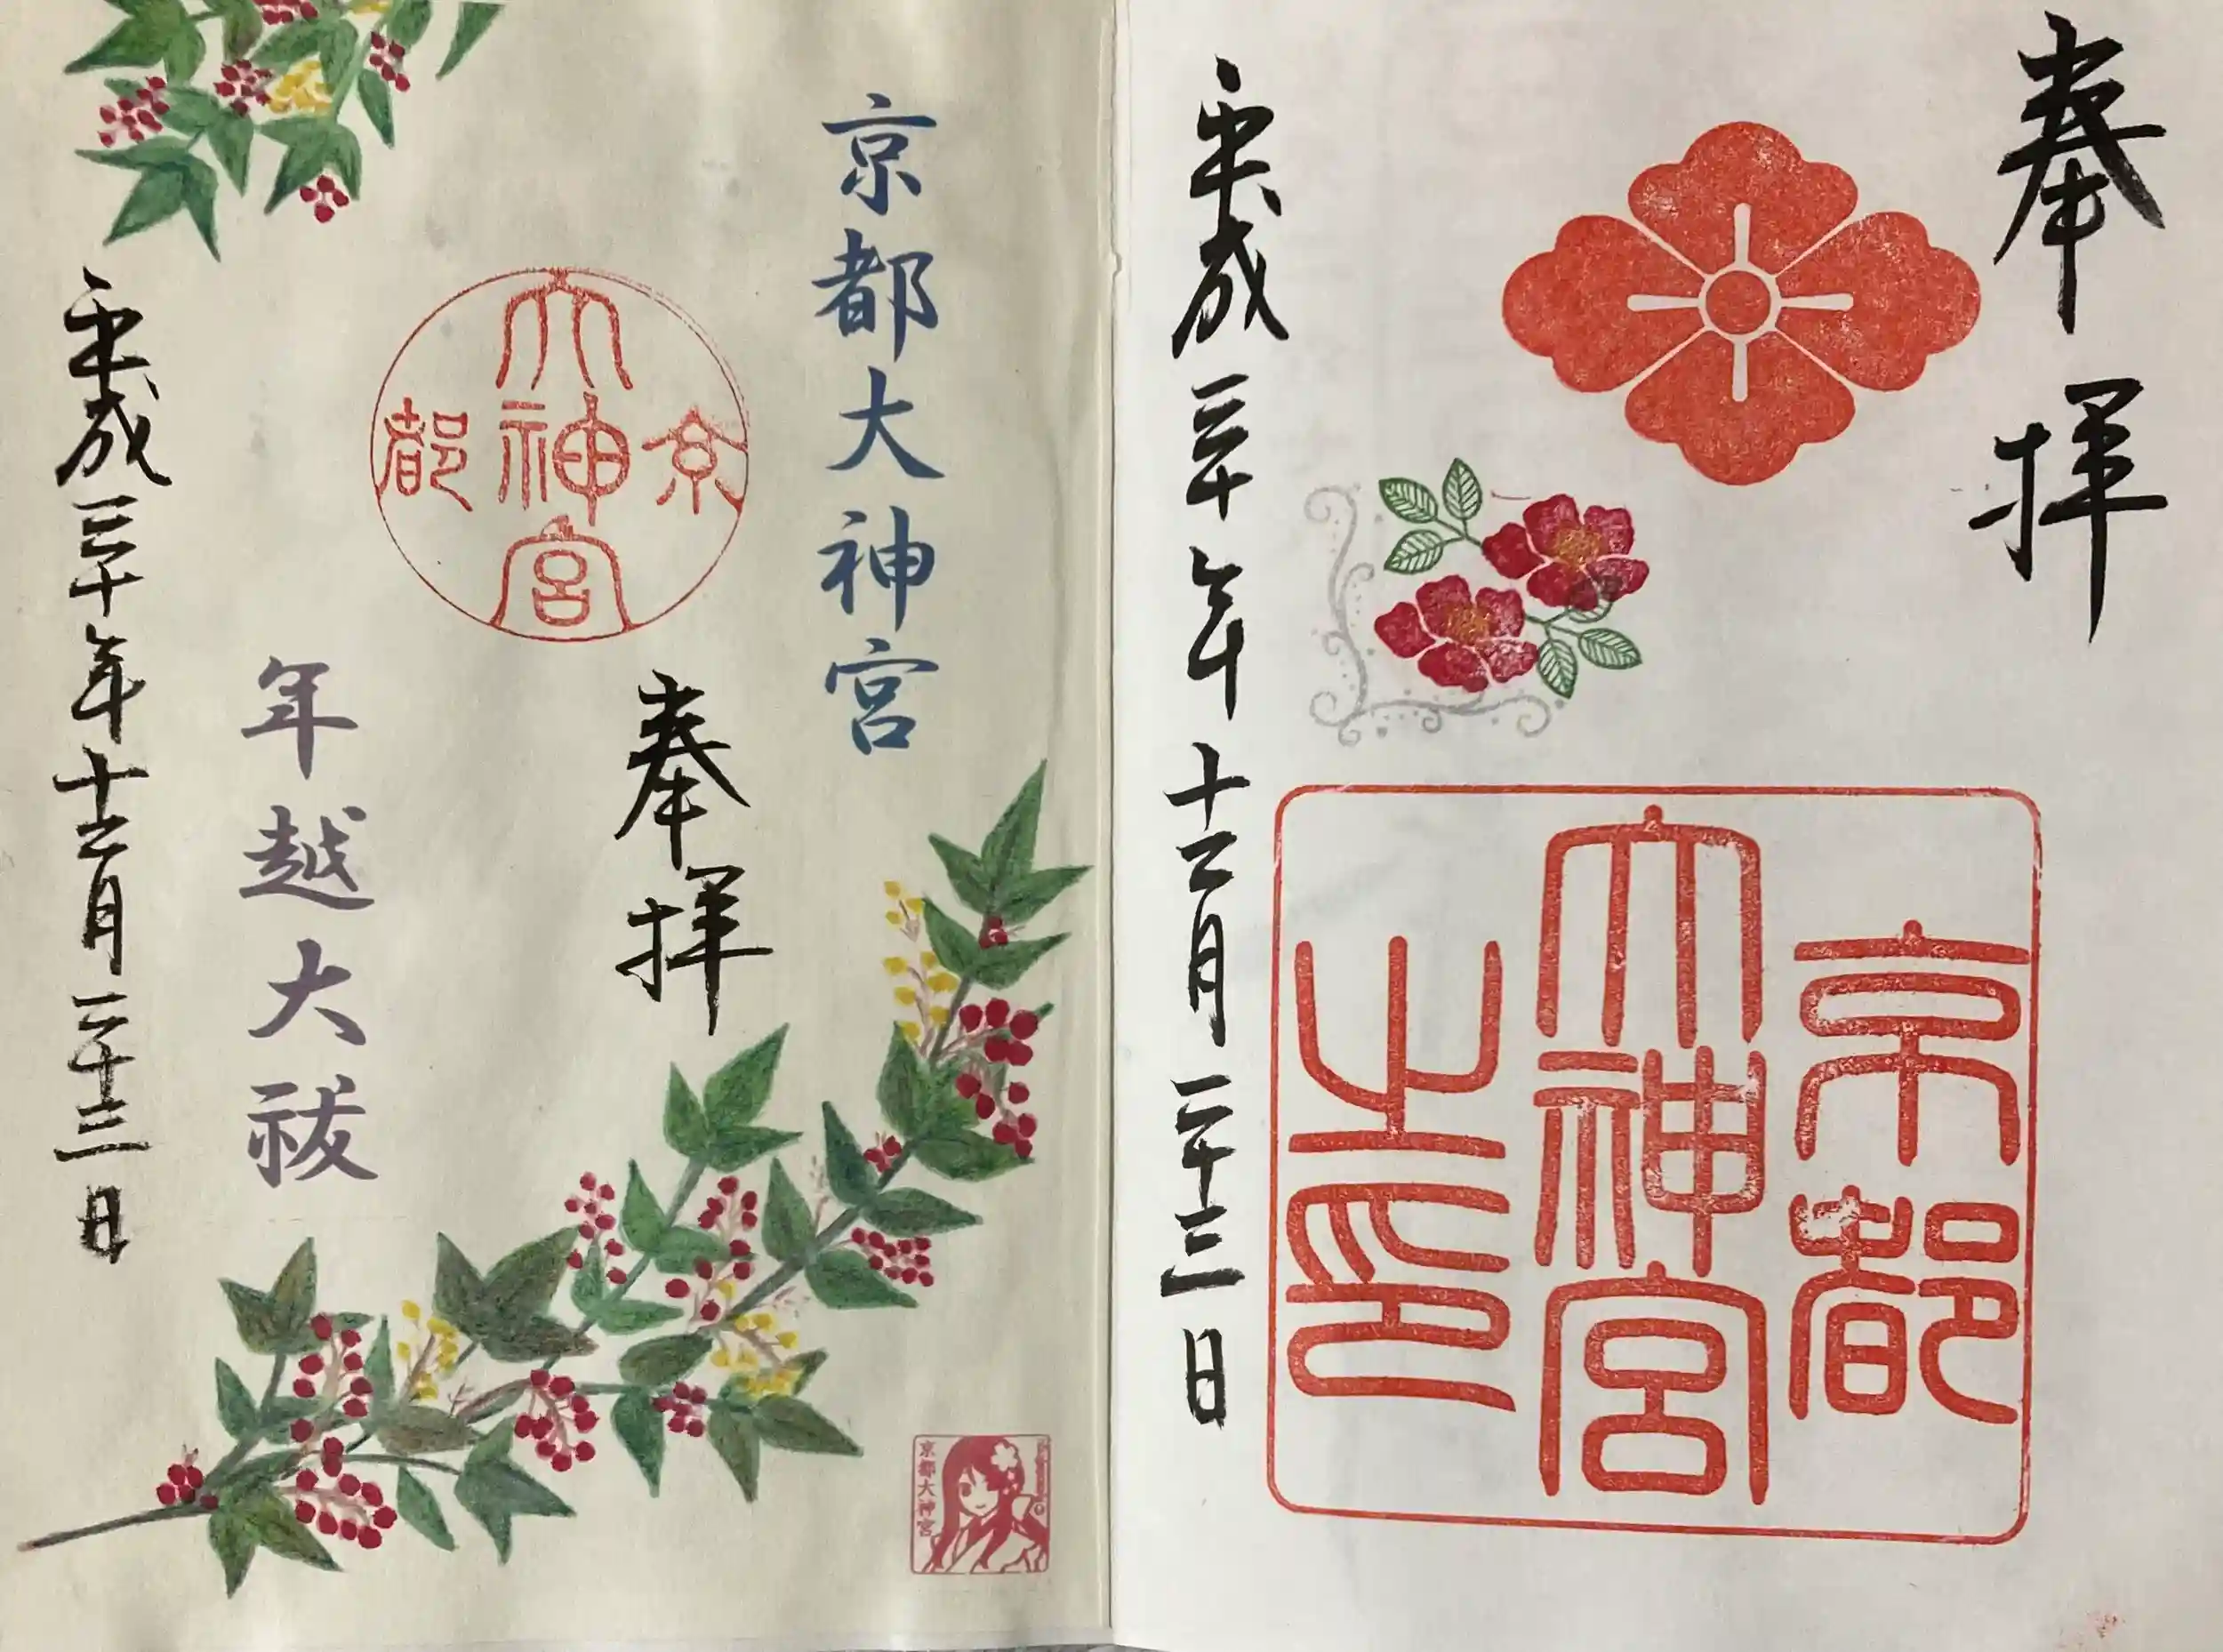 奉拝
京都
大神宮
之印
平成三十年十二月二十三日
京都大神宮
京都大神宮
奉拝
年越大祓
平成三十年十二月二十三日
京都大神宮